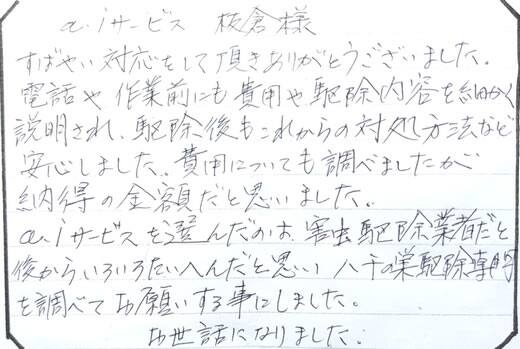 a.iサービス 板倉様
すばやい対応をして頂きありがとうございました。
電話や作業前にも費用や駆除内容を細かく
説明され、駆除後もこれからの対処方法など
安心しました。費用についても調べましたが
納得の金額だと思いました。
a.iサービスを選んだのは、害虫駆除業者だと
後からいろいろたいへんだと思い ハチの巣駆除専門
を調べてお願いする事にしました。
お世話になりました。